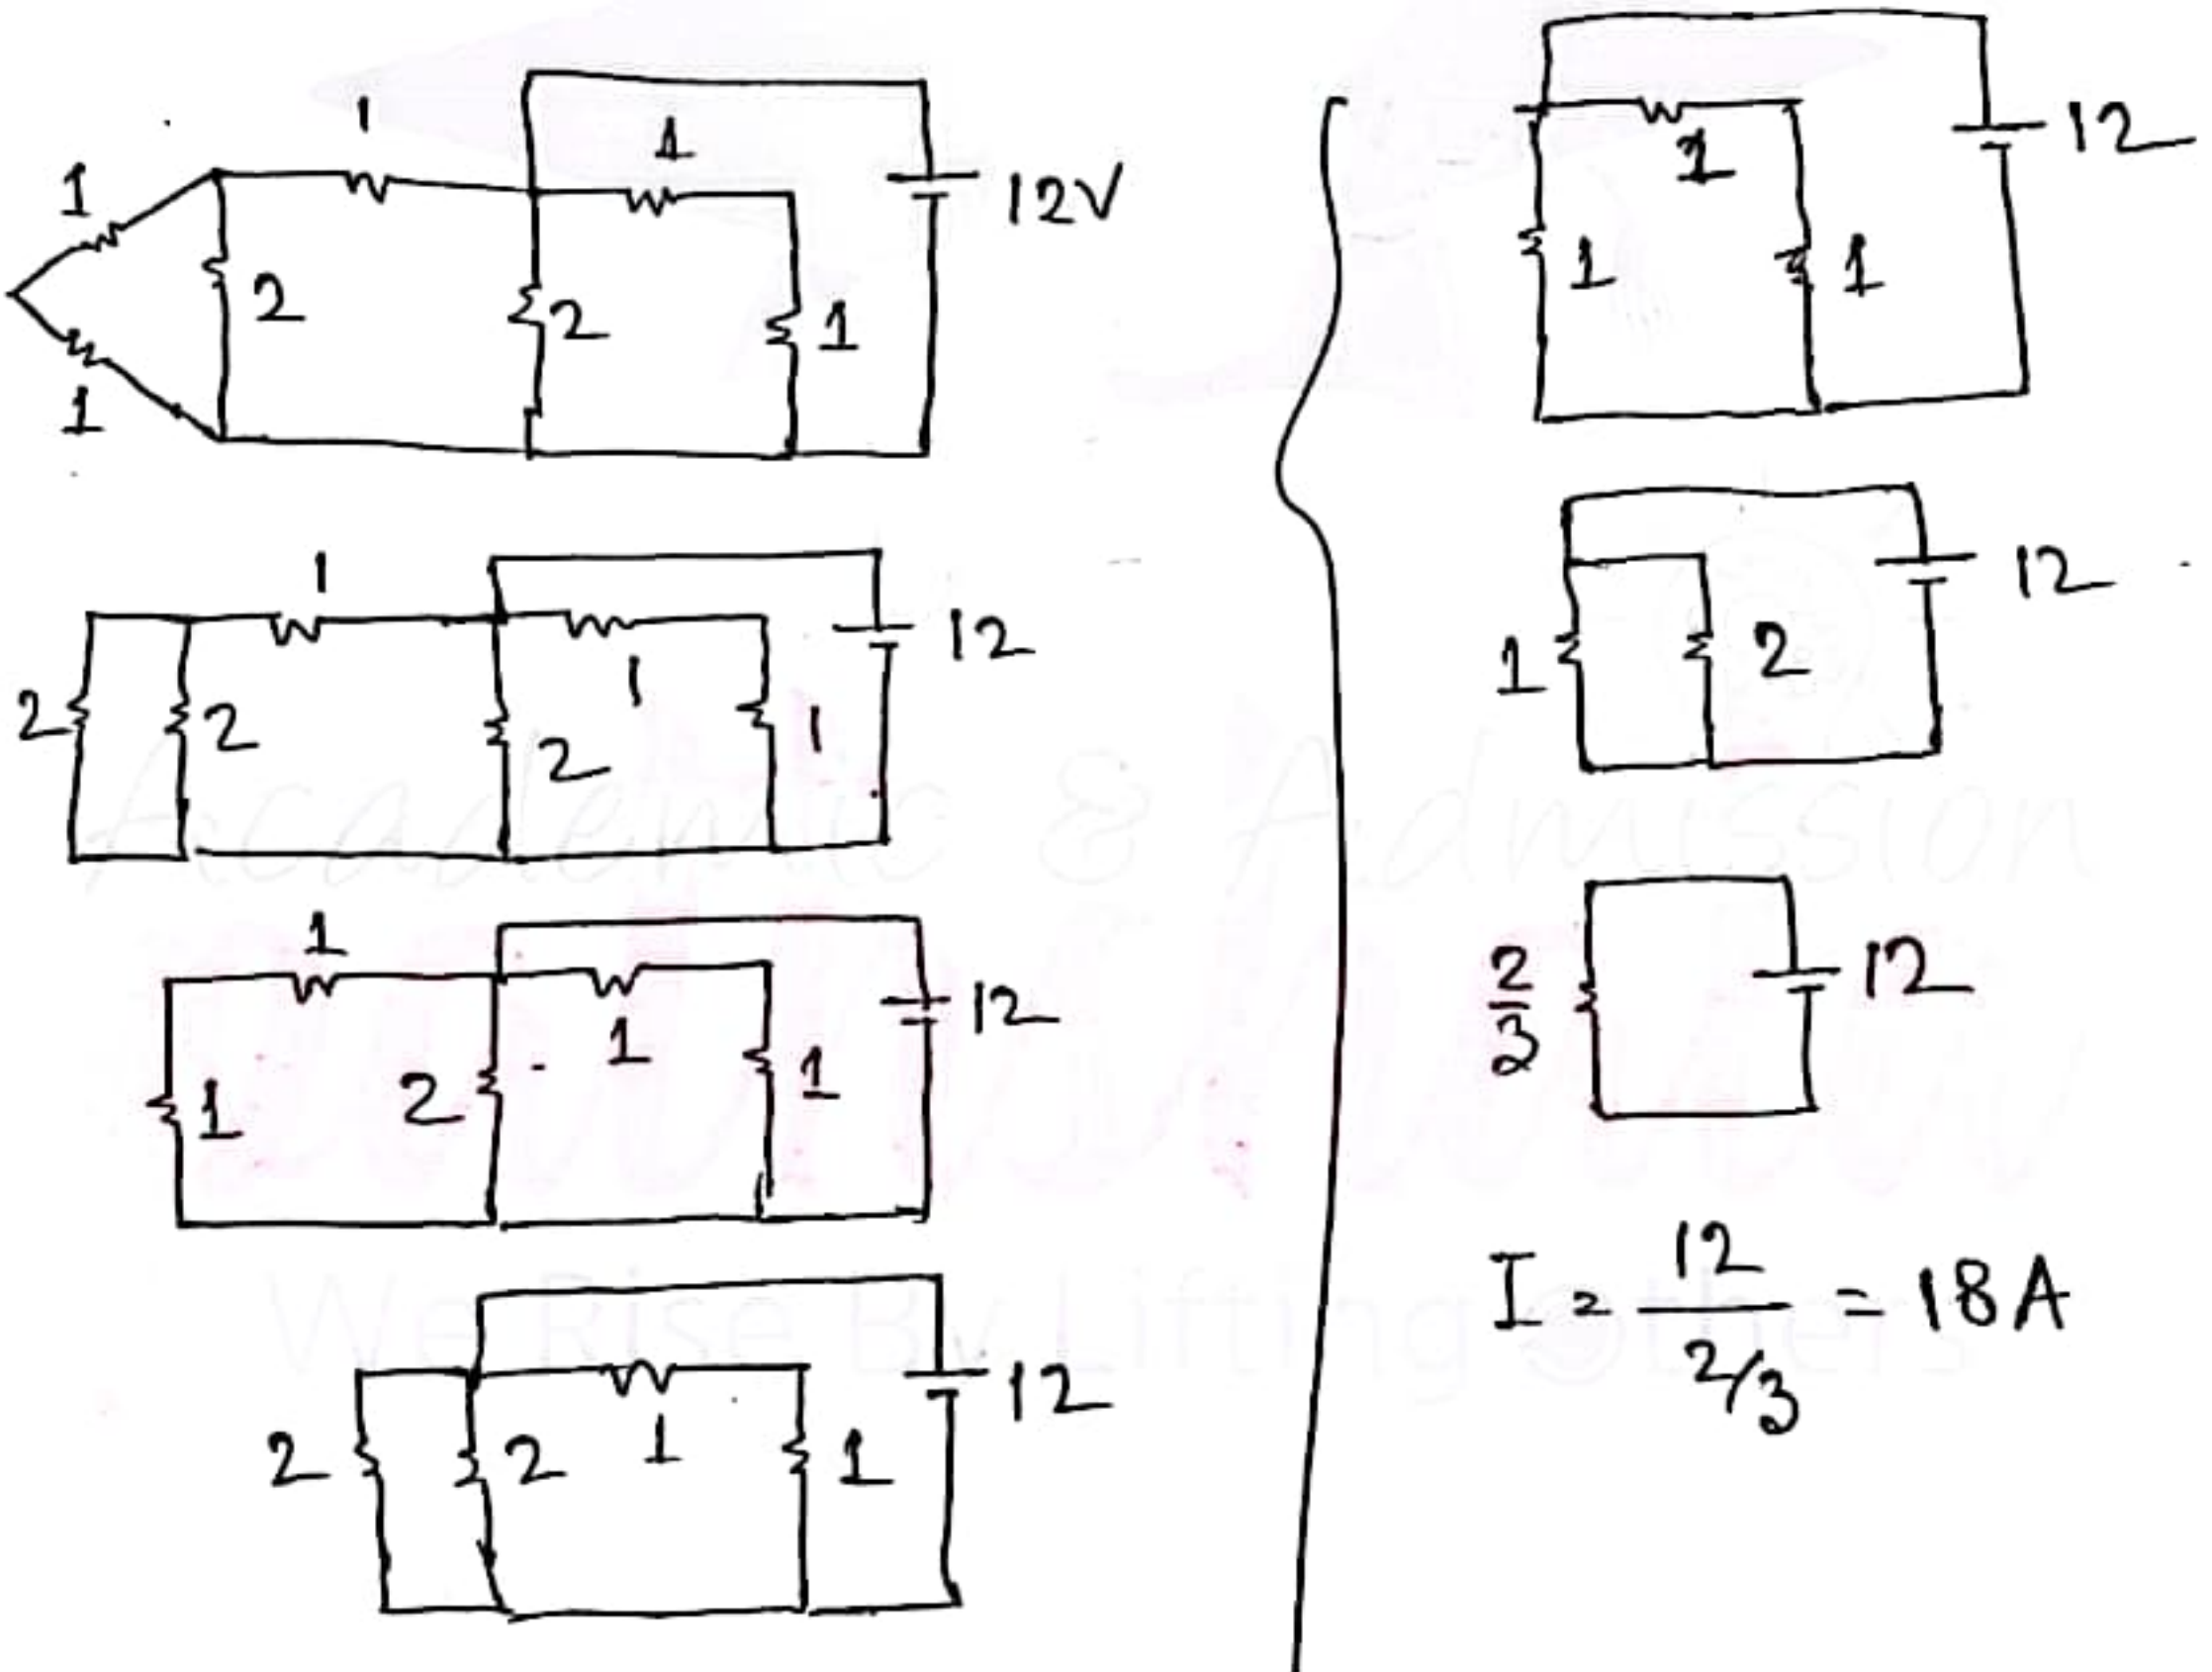 1
1
1
2
1
2
1
12V
1
2
2
2
1
1
12
1
1
2
1
1
12
2
2
1
1
12
1
1
1
12
1
2
12
2/3
12
I = 12 / 2/3 = 18A
Academic & Admission
We Rise By Lifting Others